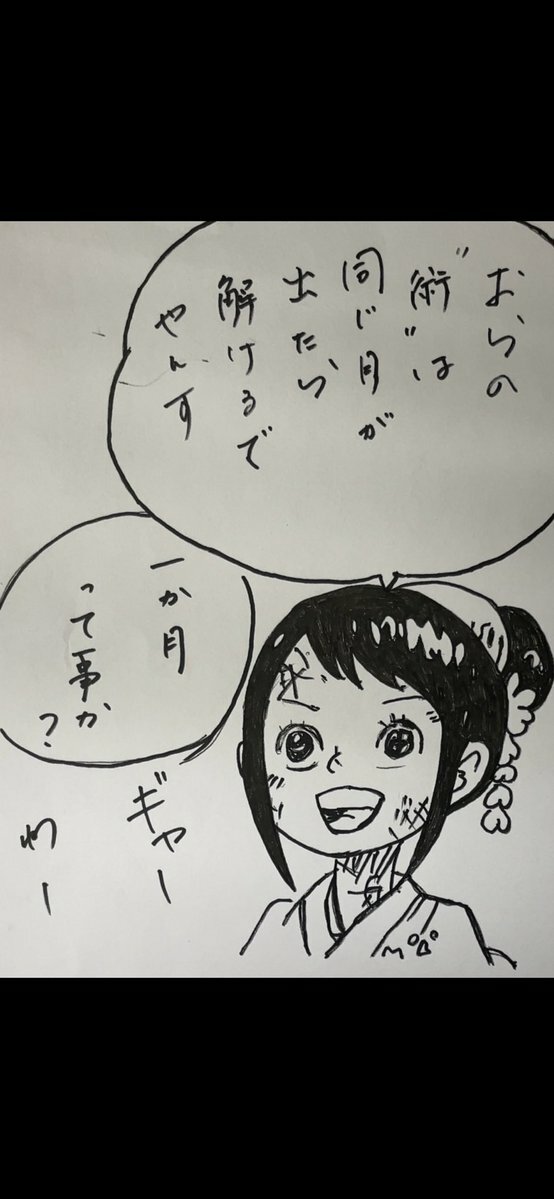 おらの
"術"は
同じ月が
出たら
解けるで
やんす
一か月
って事か
？
ギャー
わー